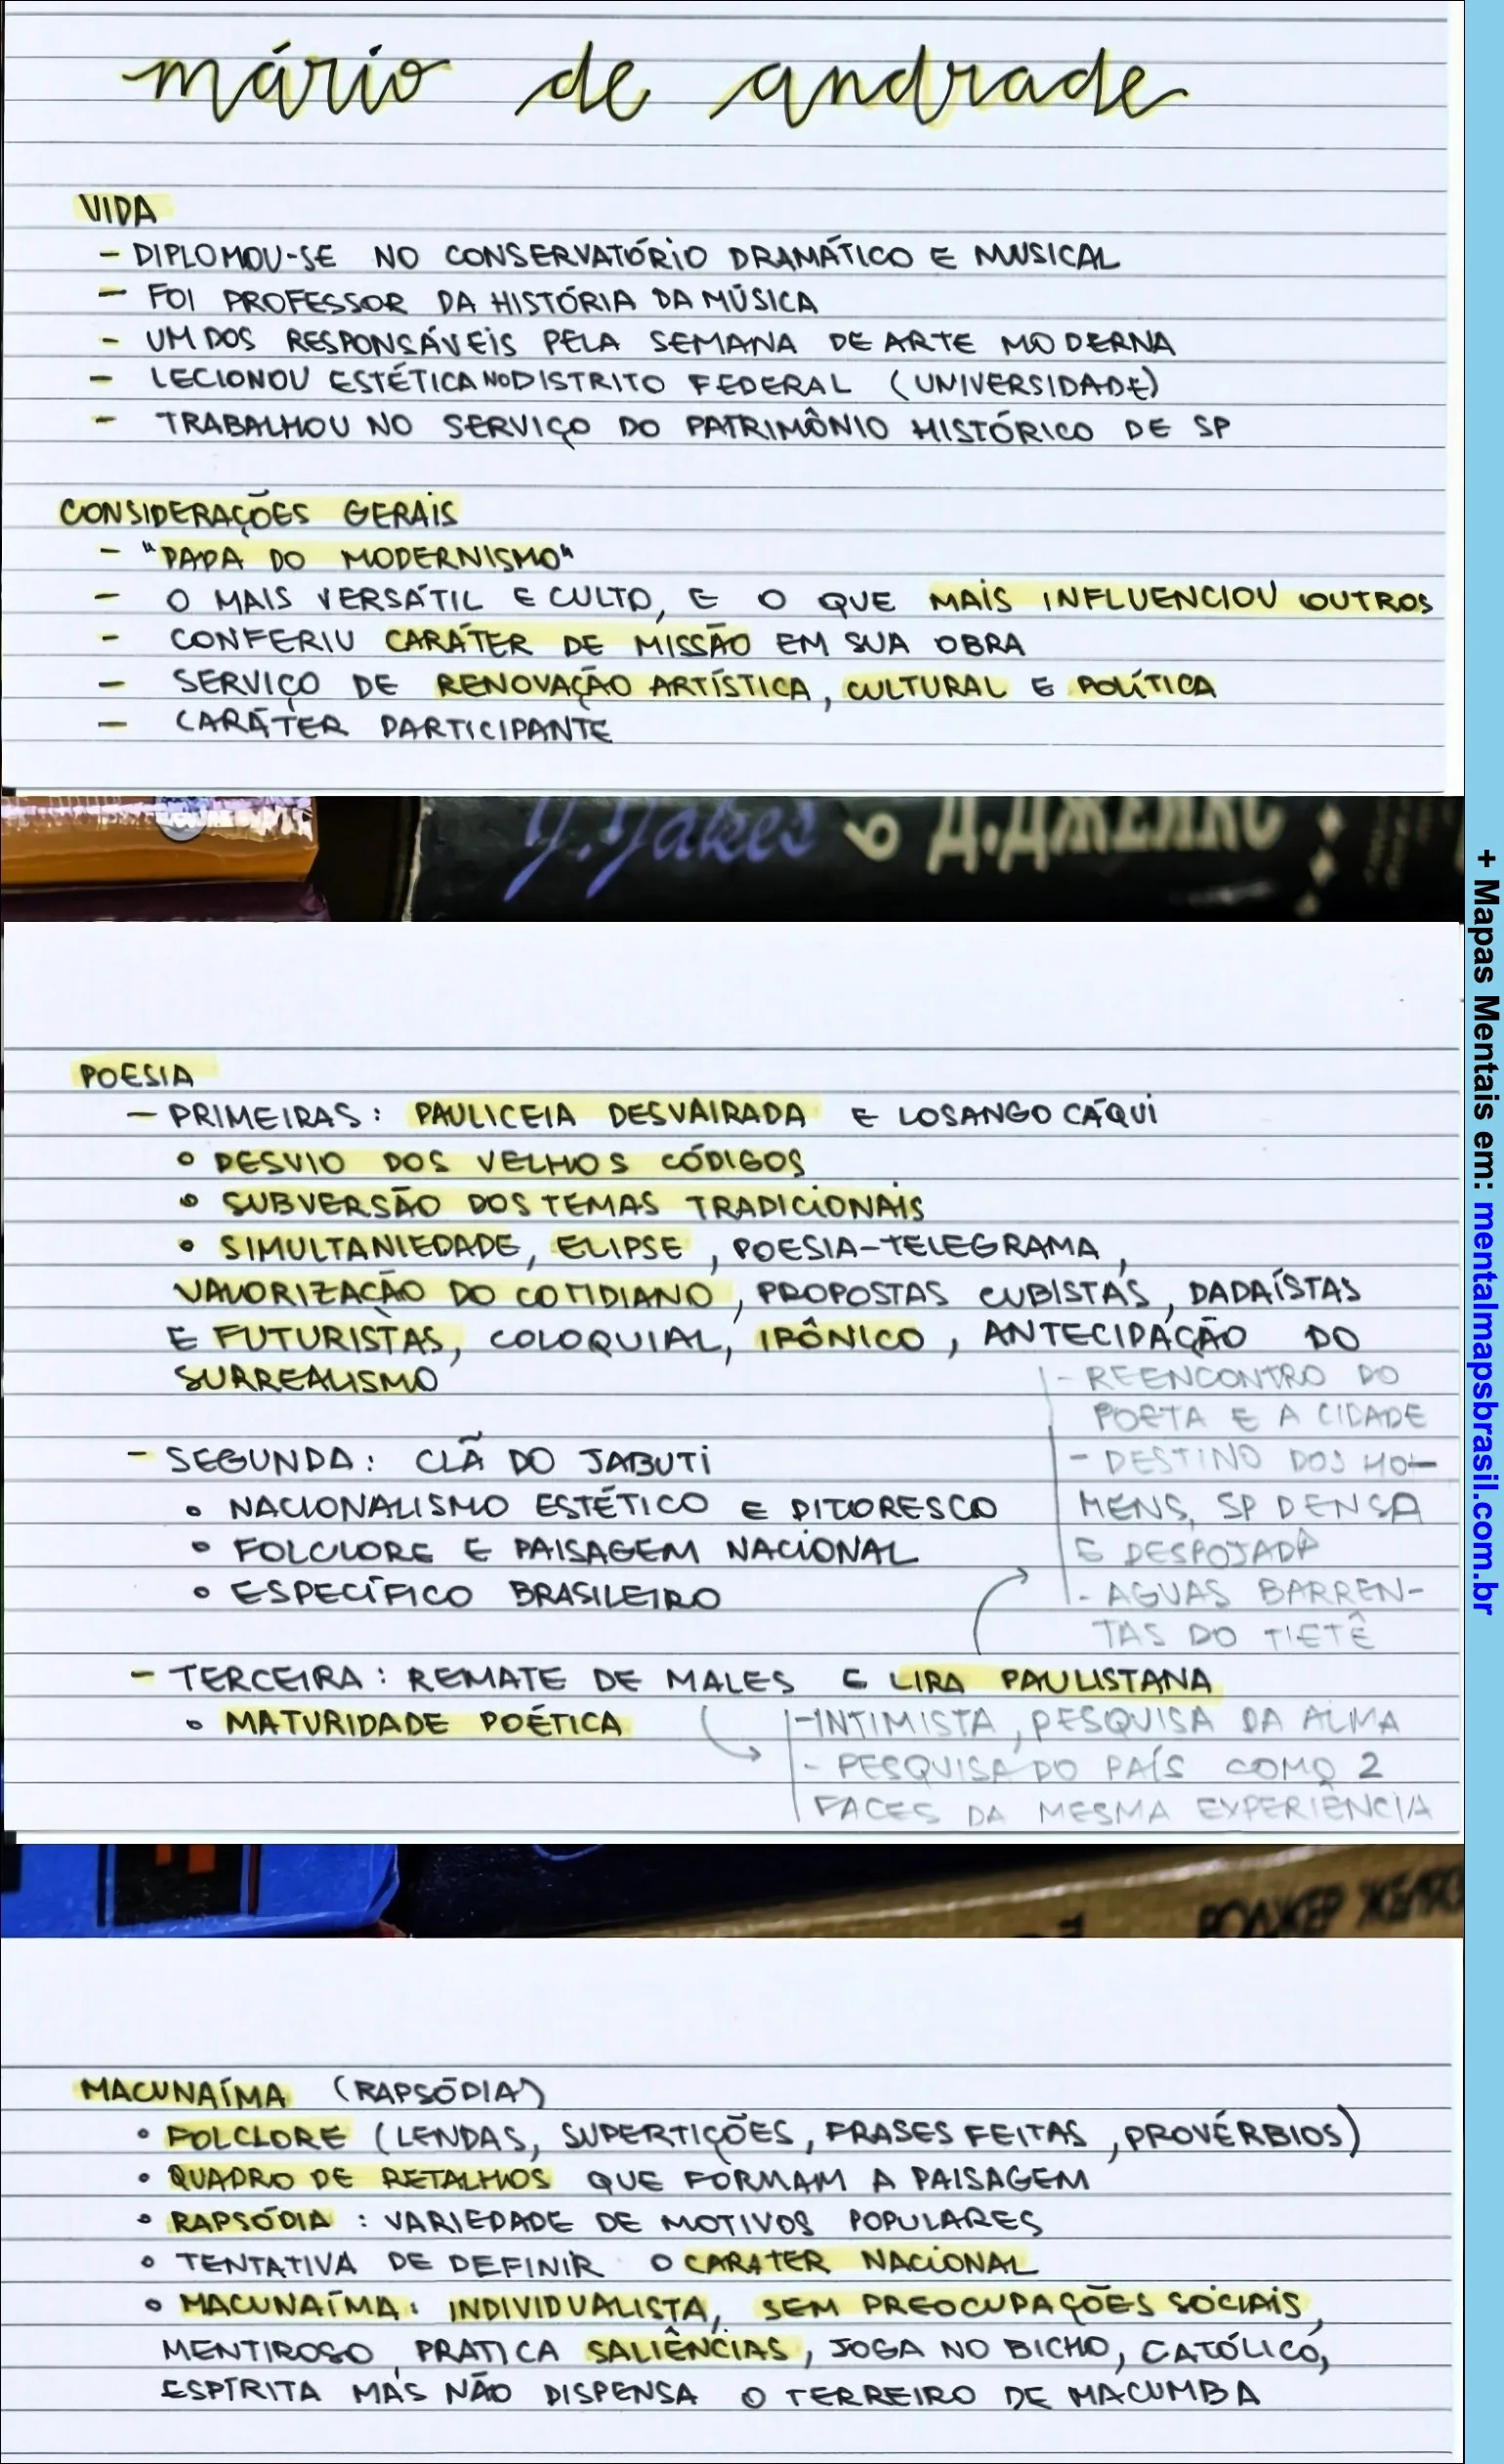 mário de andrade
VIDA
- DIPLOMOU-SE NO CONSERVATÓRIO DRAMÁTICO E MUSICAL
- FOI PROFESSOR DA HISTÓRIA DA MÚSICA
- UM DOS RESPONSÁVEIS PELA SEMANA DE ARTE MODERNA
- LECIONOU ESTÉTICA NO DISTRITO FEDERAL (UNIVERSIDADE)
- TRABALHOU NO SERVIÇO DO PATRIMÔNIO HISTÓRICO DE SP
CONSIDERAÇÕES GERAIS
- "PAPA DO MODERNISMO"
- O MAIS VERSÁTIL E CULTO, E O QUE MAIS INFLUENCIOU OUTROS
- CONFERIU CARÁTER DE MISSÃO EM SUA OBRA
- SERVIÇO DE RENOVAÇÃO ARTÍSTICA, CULTURAL E POLÍTICA
- CARÁTER PARTICIPANTE
J. Jakes 6
POESIA
- PRIMEIRAS: PAULICEIA DESVAIRADA E LOSANGO CÁQUI
• DESVIO DOS VELHOS CÓDIGOS
• SUBVERSÃO DOS TEMAS TRADICIONAIS
• SIMULTANIEDADE, ELIPSE, POESIA-TELEGRAMA,
VALORIZAÇÃO DO COTIDIANO, PROPOSTAS CUBISTAS, DADAÍSTAS
E FUTURISTAS, COLOQUIAL, IRÔNICO, ANTECIPAÇÃO DO
SURREALISMO
- REENCONTRO DO
POETA E A CIDADE
- DESTINO DOS HO-
MENS, SP DENSA
E DESPOJADA
- AGUAS BARREN-
TAS DO TIETÊ
- SEGUNDA: CLÃ DO JABUTI
• NACIONALISMO ESTÉTICO E PITORESCO
• FOLCLORE E PAISAGEM NACIONAL
• ESPECÍFICO BRASILEIRO
- TERCEIRA: REMATE DE MALES E LIRA PAULISTANA
• MATURIDADE POÉTICA
- INTIMISTA, PESQUISA DA ALMA
- PESQUISA DO PAÍS COMO 2
FACES DA MESMA EXPERIÊNCIA
РОДЖЕР
MACUNAÍMA (RAPSÓDIA)
• FOLCLORE (LENDAS, SUPERTIÇÕES, FRASES FEITAS, PROVÉRBIOS)
• QUADRO DE RETALHOS QUE FORMAM A PAISAGEM
• RAPSÓDIA: VARIEDADE DE MOTIVOS POPULARES
• TENTATIVA DE DEFINIR O CARATER NACIONAL
• MACUNAÍMA: INDIVIDUALISTA, SEM PREOCUPAÇÕES SOCIAIS,
MENTIROSO, PRATICA SALIÊNCIAS, JOGA NO BICHO, CATÓLICO,
ESPÍRITA MAS NÃO DISPENSA O TERREIRO DE MACUMBA
+ Mapas Mentais em: mentalmapsbrasil.com.br